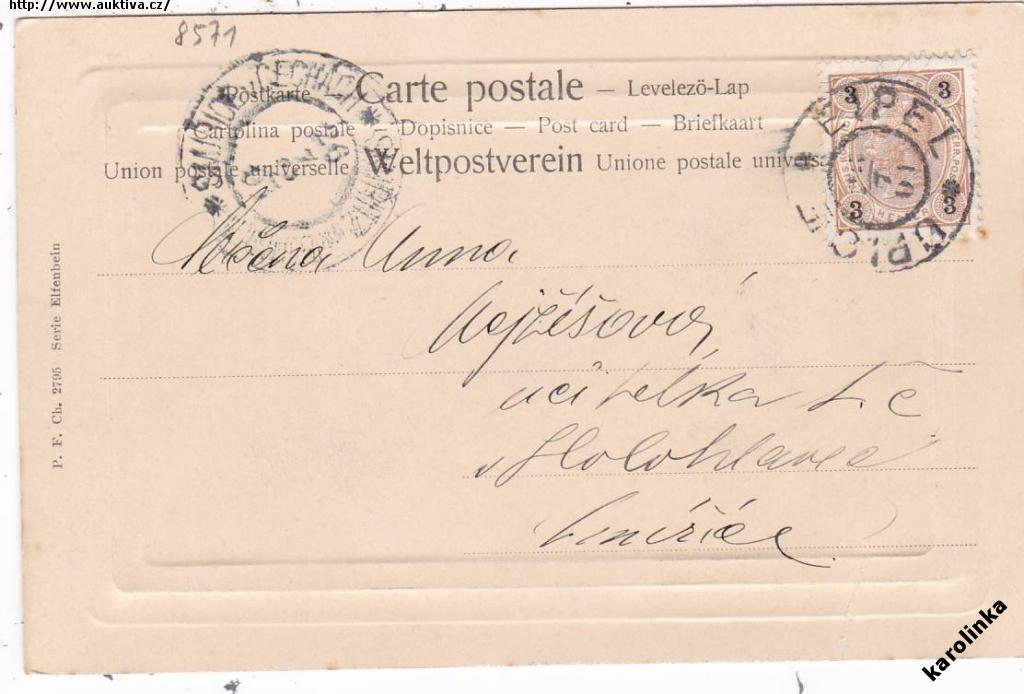 http://www.auktiva.cz/
8571
Postkarte Carte postale – Levelezö-Lap
Cartolina postale – Dopisnice – Post card – Briefkaart
Union postale universelle Weltpostverein Unione postale universa
3 3
EIPEL
3 3
ÚPICE
Slečna Anna
Nejžéšová
učitelka t. č
v Holohlavec
Smiřice
P. F. Ch. 2795 Serie Elfenbein
karolinka